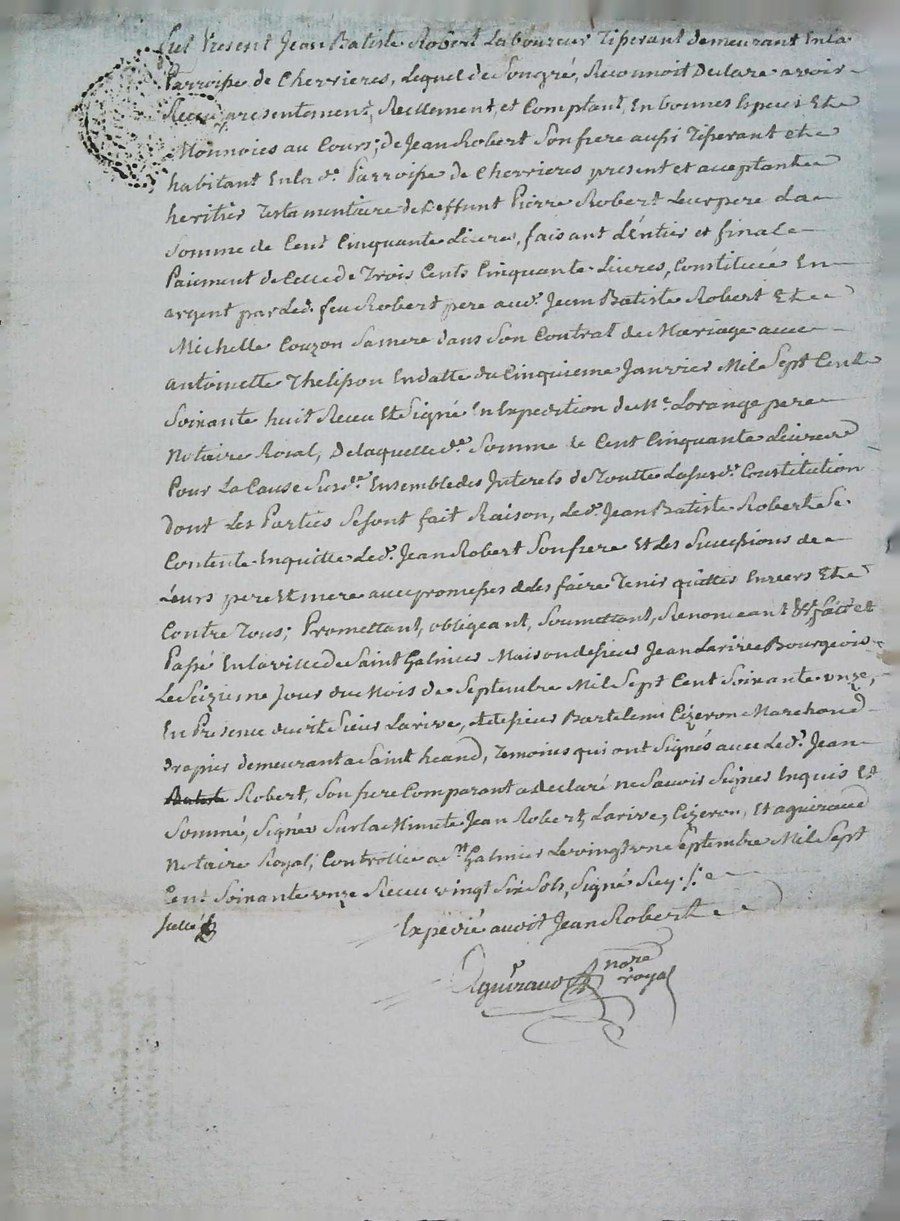 fut Present Jean Batiste Robert Laboureur Tisserant demeurant En la
Parroisse de Cherrieres, Lequel de Songré, Reconnoit Declare avoir
Receu presentement, Reellement, et Comptant, En bonnes Especes Et
Monnoies au Cours; de Jean Robert Son frere aussi Tisserant et
habitant En la d.e Parroisse de Cherrieres present et acceptant
heritier Testamentaire de deffunt Pierre Robert Leur pere La
Somme de Cent Cinquante Livres, faisant d'Entier et final
Paiment de Celle de Trois Cents Cinquante Livres, Constituée En
argent par Led. feu Robert pere aud. Jean Batiste Robert Et
Michelle Couzon Sa mere dans Son Contrat de Mariage avec
antoinette Thelisson En datte du Cinquieme Janvier Mil Sept Cent
Soixante huit Receu Et Signé En Expedition de M.e Lorange pere
Notaire Roial, De laquelle d.e Somme de Cent Cinquante Livres
Pour La Cause Susd.e Ensemble des Interets de Toutte La susd.e Constitution
dont Les Parties Se sont fait Raison, Led. Jean Batiste Robert Se
Contente Enquitte Led. Jean Robert Son frere Et Les Successions de
Leurs pere Et mere avec promesses de Les faire Tenir quittes Envers Et
Contre Tous; Promettant, obligeant, Soumettant, Renonceant fait et
Passé En la ville de Saint Galmier Maison de sieur Jean Larive Bourgeois
Le Seizieme Jour du Mois de Septembre Mil Sept Cent Soixante onze,
En Presence dudit Sieur Larive, et de sieur Bartelemi Cizeron Marchand
Drapier demeurant a Saint heand, Temoins qui ont Signés avec Led. Jean
Batiste Robert, Son frere Comparant a declaré ne Savoir Signer Enquis Et
Sommé, Signés Sur La Minute Jean Robert, Larive, Cizeron, Et aguiraud
Notaire Royal, Controllée a St Galmier Le vingt une Septembre Mil Sept
Cent Soixante onze Receu vingt Six Sols, Signé
Scellé
Expedié audit Jean Robert
Aguiraud
no.re royal